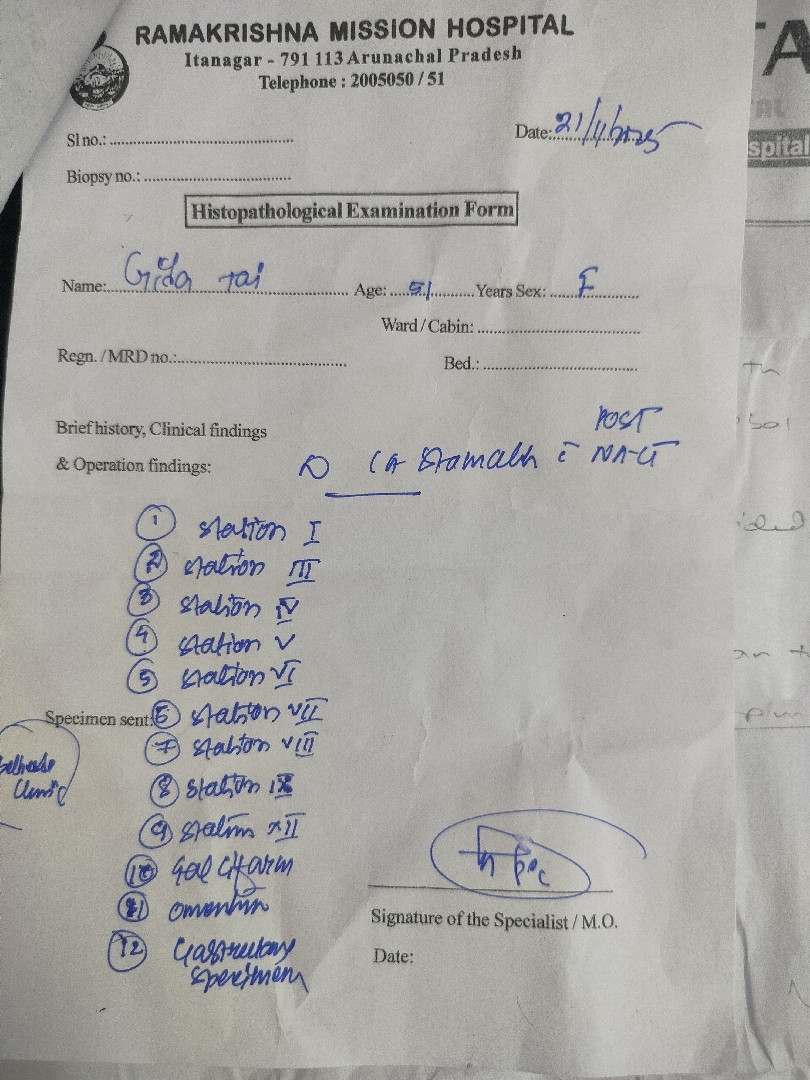 RAMAKRISHNA MISSION HOSPITAL
Itanagar - 791 113 Arunachal Pradesh
Telephone : 2005050 / 51
Sl no.:
Date: 21/4/2025
Biopsy no.:
Histopathological Examination Form
Name: Gida Tai Age: 51 Years Sex: F
Ward / Cabin:
Regn. / MRD no.:
Bed.:
Brief history, Clinical findings
& Operation findings:
POST
CA Stomach c̄ NACT
1 Station I
2 Station III
3 Station IV
4 Station V
5 Station VI
Specimen sent: 6 Station VII
7 Station VIII
8 Station IX
9 Station XII
10
11 Omentum
12 Gastrectomy
Specimen
Clinic
Signature of the Specialist / M.O.
Date:
spital